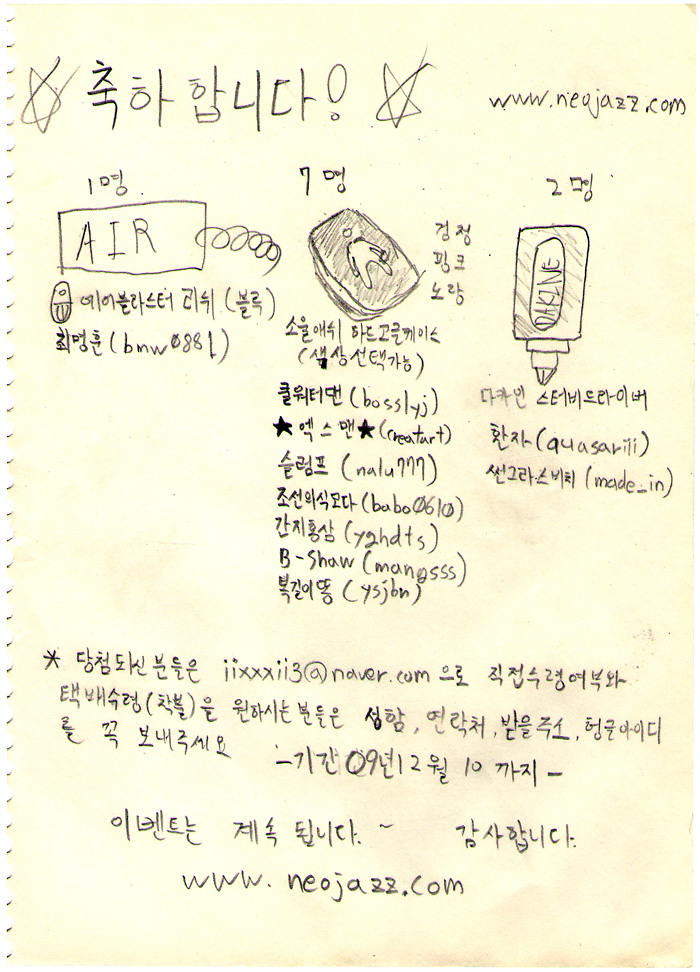 축하합니다!
www.neojazz.com
1명
AIR
에어블라스터 리쉬 (블록)
최명훈 (bnw0881)
7명
검정
핑크
노랑
소울애쉬 하드고글케이스
(색상선택가능)
쿨워터댄 (bosslyj)
★엑스맨★ (creatart)
슬럼프 (nalu777)
조선의식모다 (babo0610)
간지홍삼 (yghdts)
B-Shaw (mangsss)
복길이똥 (ysjbn)
2명
DAKINE
다카인 스터비드라이버
환자 (quasariii)
썬그라스비치 (made_in)
* 당첨되신분들은 iixxxii3@naver.com으로 직접수령여부와
택배수령(착불)을 원하시는분들은 성함, 연락처, 받을주소, 헝글아이디
를 꼭 보내주세요
-기간 09년12월 10 까지-
이벤트는 계속 됩니다. ~ 감사합니다.
www.neojazz.com